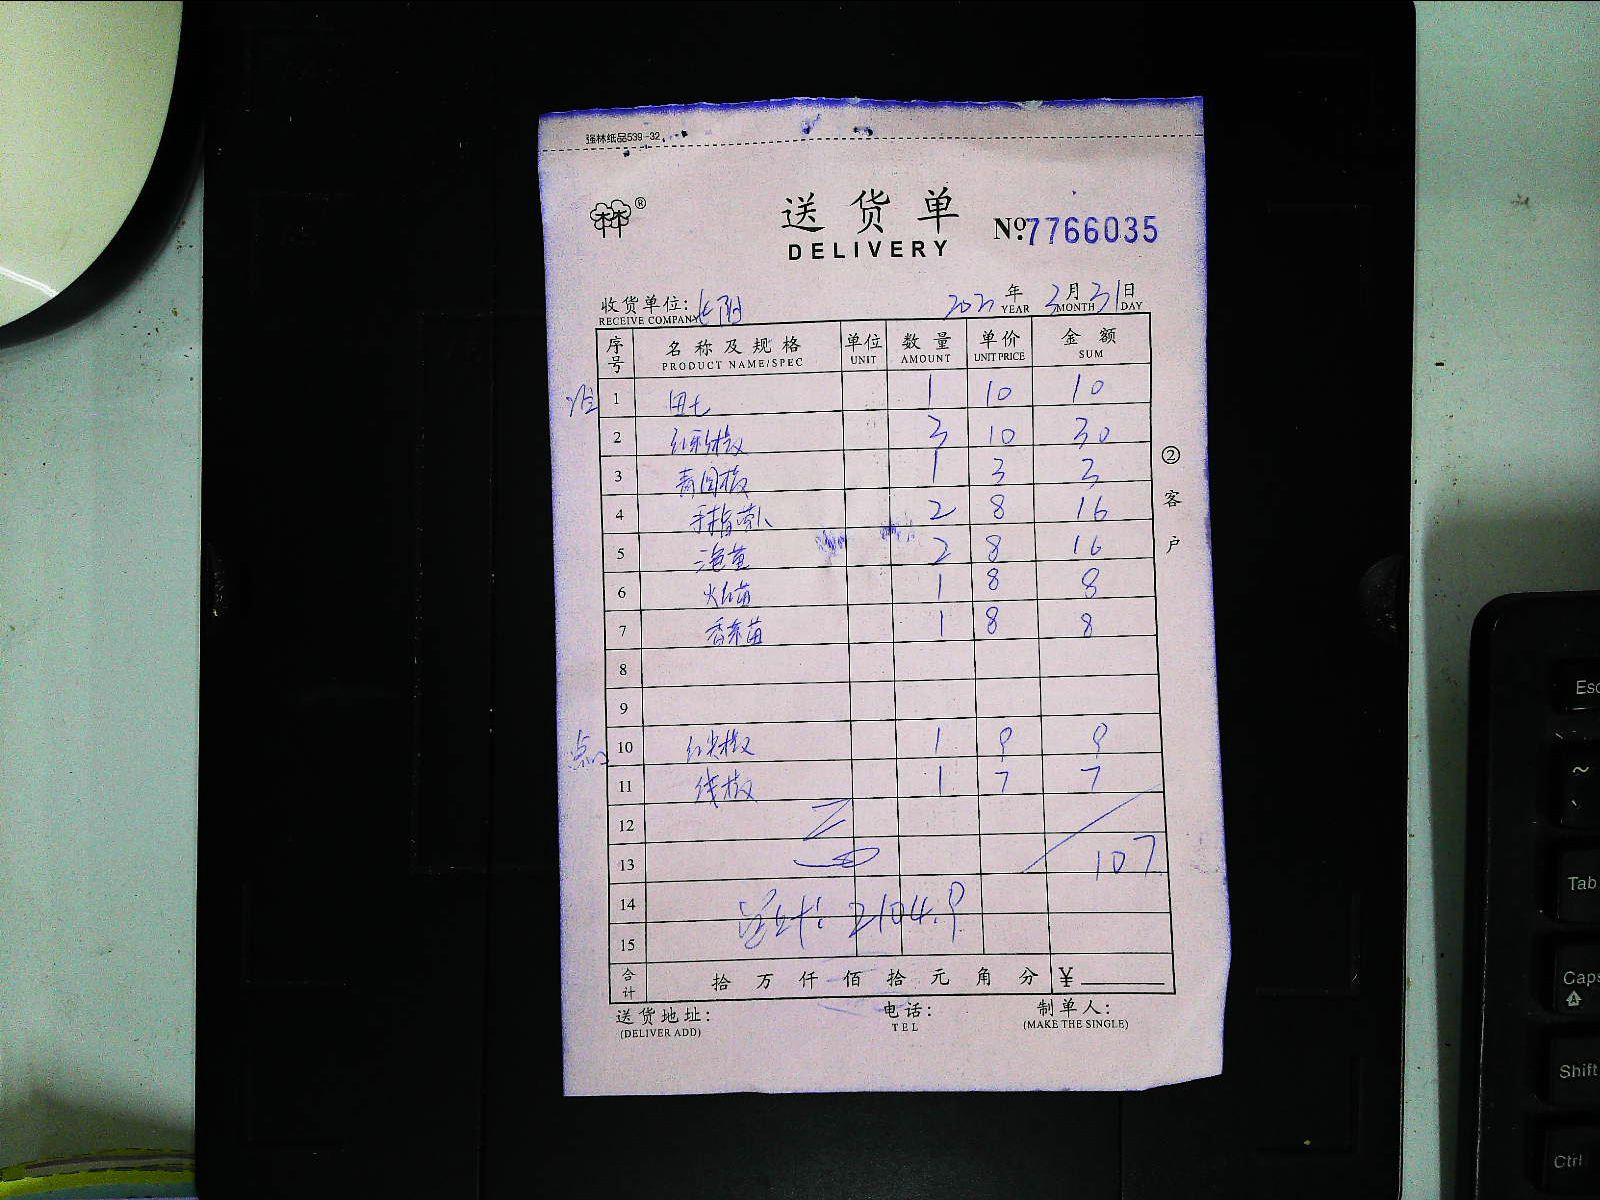 强林纸品539-32
林林®
送货单
DELIVERY
No.7766035
收货单位:
RECEIVE COMPANY
2021年3月31日
YEAR MONTH DAY
序号 名称及规格 单位 数量 单价 金额
PRODUCT NAME/SPEC UNIT AMOUNT UNIT PRICE SUM
1 田七 1 10 10
2 红彩椒 3 10 30
3 青园椒 1 3 3
4 手指萝卜 2 8 16
5 2 8 16
6 苗 1 8 8
7 香菜苗 1 8 8
8
9
10 红尖椒 1 9 9
11 线椒 1 7 7
12
13 107
14 2104.9
15
合计 拾万仟佰拾元角分 ¥
②客户
送货地址: 电话: 制单人:
(DELIVER ADD) TEL (MAKE THE SINGLE)
Esc
~
Tab
Caps
Shift
Ctrl